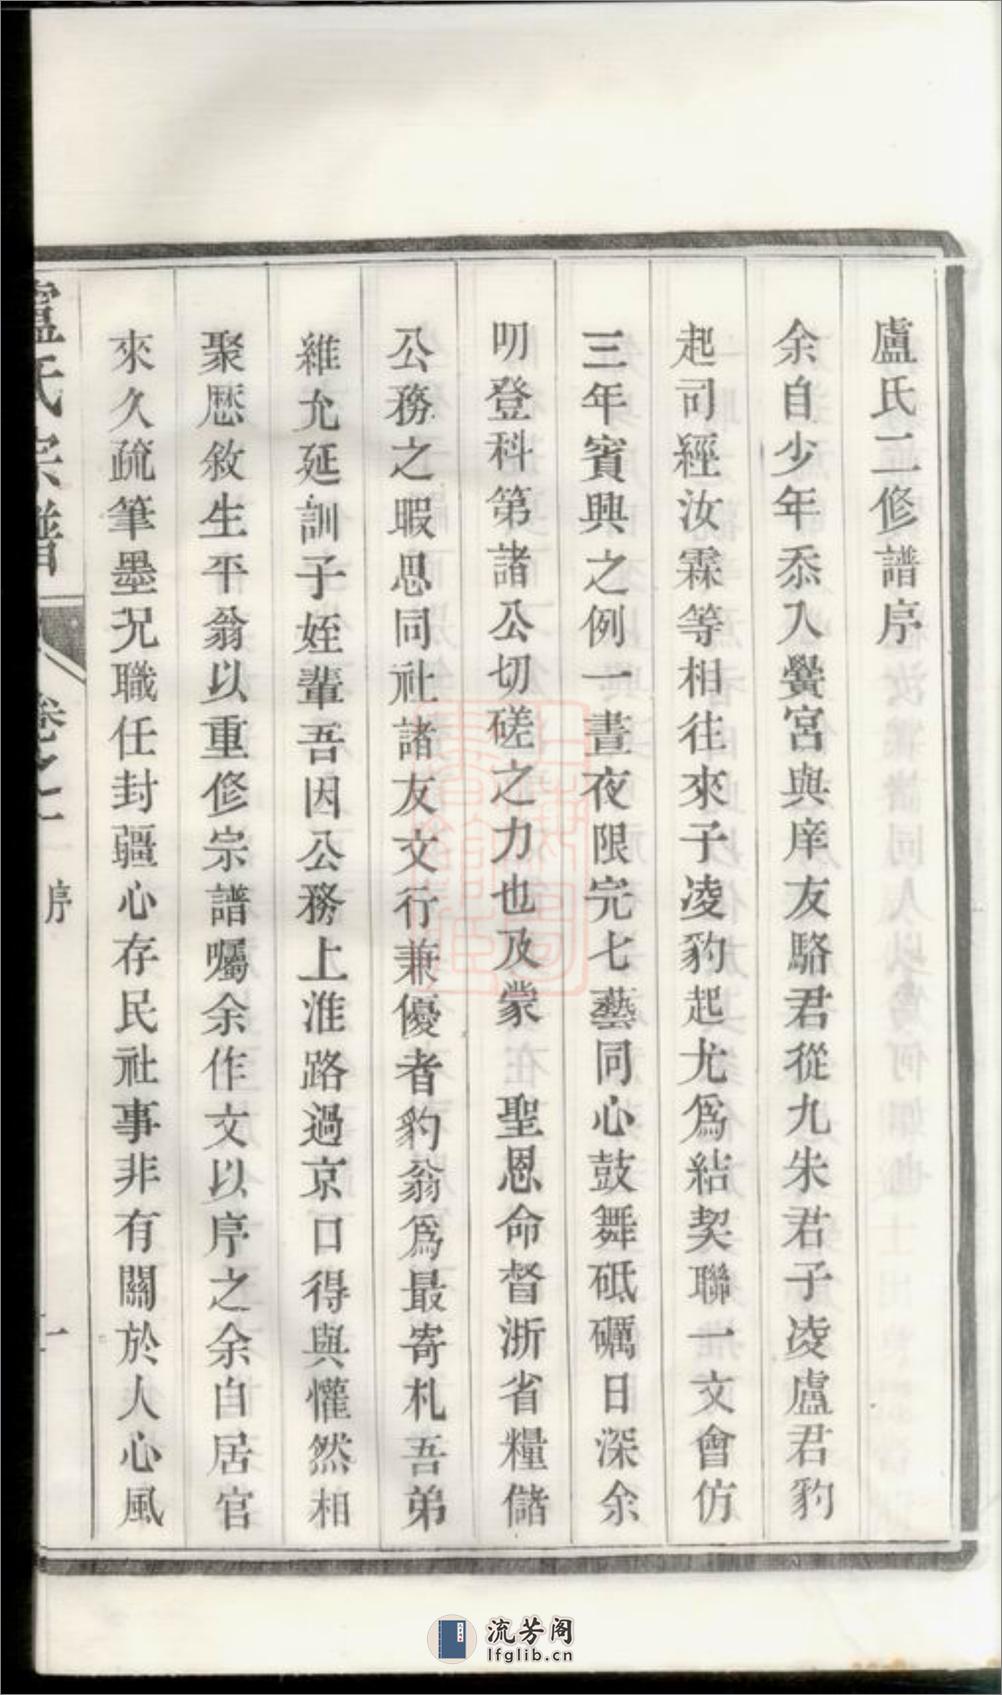 盧氏二修譜序
余自少年忝入黌宮與庠友駱君從九朱君子凌盧君豹
起司經汝霖等相往來子凌豹起尤爲結契聯一文會仿
三年賓興之例一晝夜限完七藝同心鼓舞砥礪日深余
叨登科第諸公切磋之力也及蒙 聖恩命督浙省糧儲
公務之暇思同社諸友文行兼優者豹翁爲最寄札吾弟
維允延訓子姪輩吾因公務上淮路過京口得與懽然相
聚歷敘生平翁以重修宗譜囑余作文以序之余自居官
來久疏筆墨況職任封疆心存民社事非有關於人心風
盧氏宗譜 卷之一 序
流芳阁
lfglib.cn